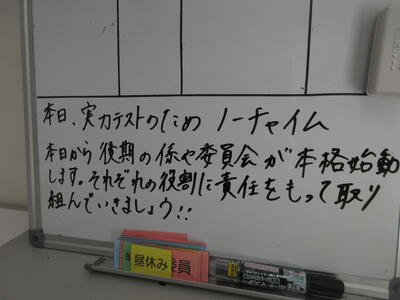 本日、実力テストのため ノーチャイム
本日から後期の係や委員会が本格始動
します。それぞれの役割に責任をもって取り
組んでいきましょう!!
昼休み
委員